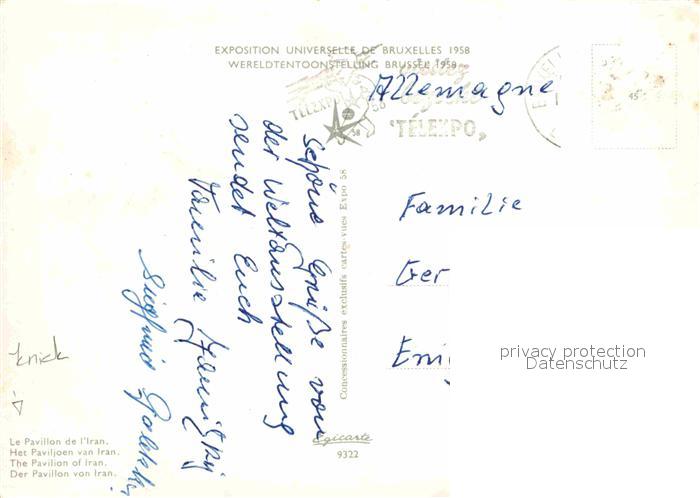 EXPOSITION UNIVERSELLE DE BRUXELLES 1958
WERELDTENTOONSTELLING BRUSSEL 1958
TÉLEXPO
58
"TÉLEXPO"
45
Allemagne
Schöne Grüße von
der Weltausstellung
sendet Euch
Familie
Siegfried
Concessionnaires exclusifs cartes-vues Expo 58
Familie
Ger
privacy protection
Datenschutz
Knick
Le Pavillon de l'Iran.
Het Paviljoen van Iran.
The Pavilion of Iran.
Der Pavillon von Iran.
Egicarte
9322